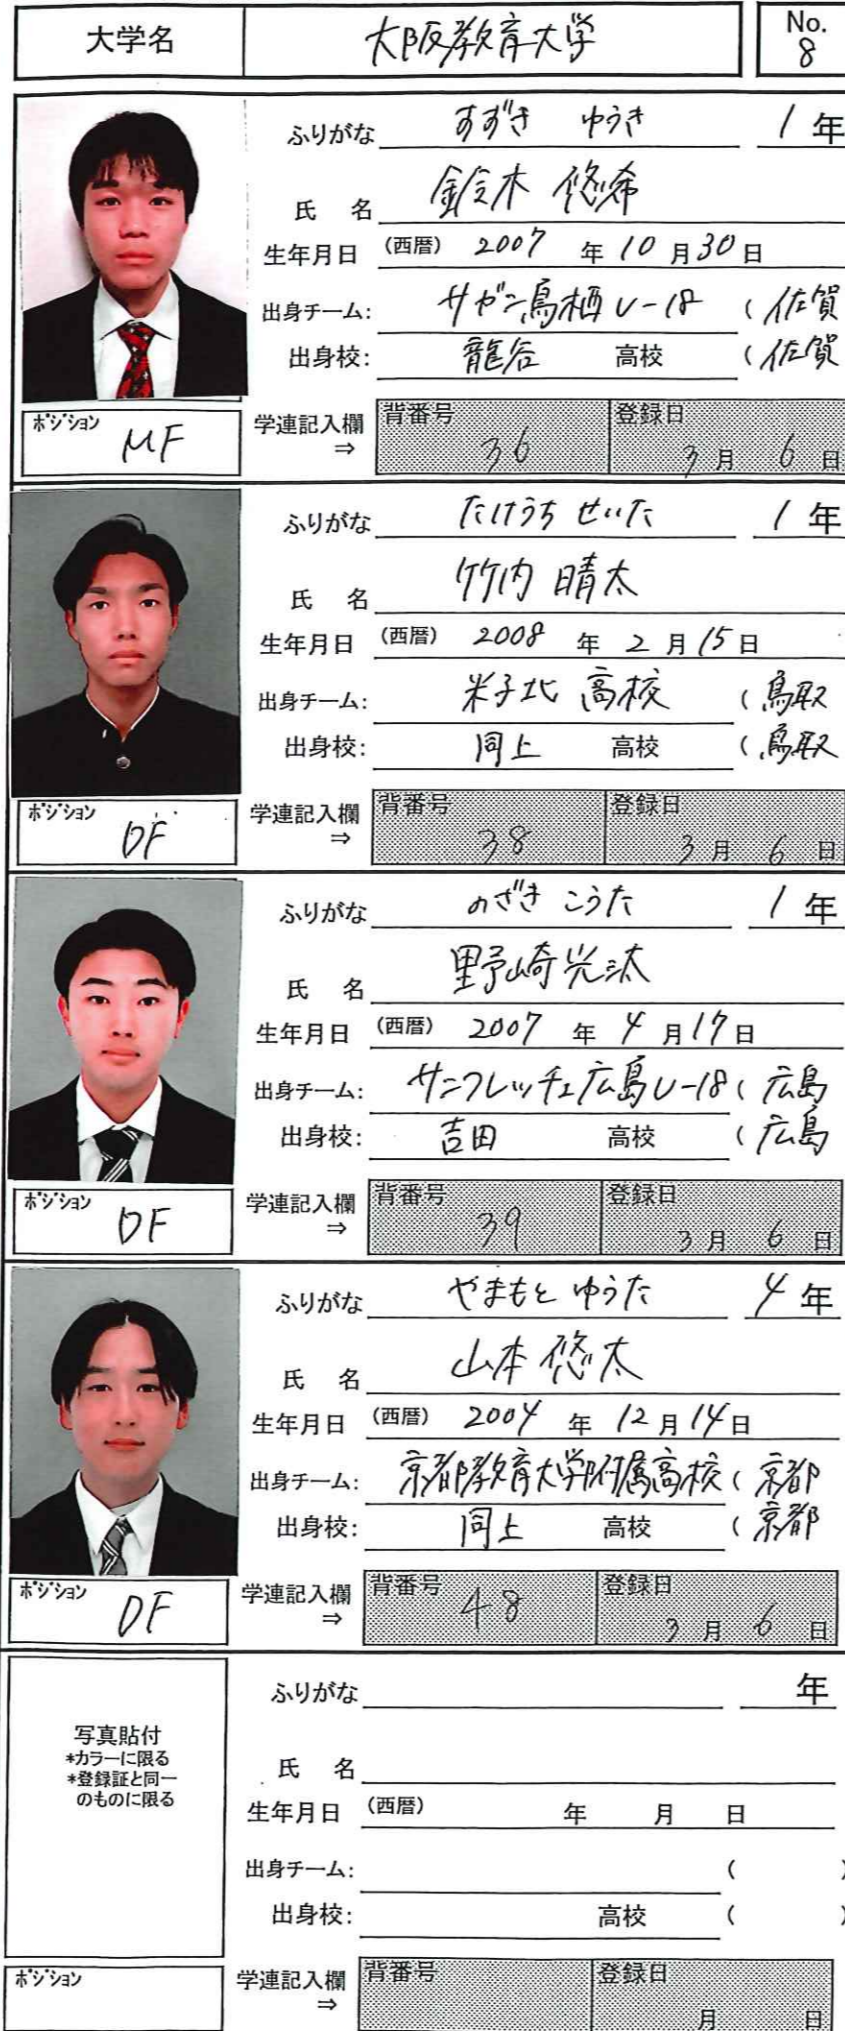 大学名 大阪教育大学 No. 8
ふりがな すずき ゆうき 1年
氏 名 鈴木 悠希
生年月日 (西暦) 2007 年 10 月 30 日
出身チーム: サガン鳥栖 U-18 (佐賀
出身校: 龍谷 高校 (佐賀
ポジション MF 学連記入欄⇒ 背番号 36 登録日 3月 6日
ふりがな たけうち せいた 1年
氏 名 竹内 晴太
生年月日 (西暦) 2008 年 2 月 15 日
出身チーム: 米子北 高校 (鳥取
出身校: 同上 高校 (鳥取
ポジション DF 学連記入欄⇒ 背番号 38 登録日 3月 6日
ふりがな のざき こうた 1年
氏 名 野崎 光汰
生年月日 (西暦) 2007 年 4 月 17 日
出身チーム: サンフレッチェ広島 U-18 (広島
出身校: 吉田 高校 (広島
ポジション DF 学連記入欄⇒ 背番号 39 登録日 3月 6日
ふりがな やまもと ゆうた 4年
氏 名 山本 悠太
生年月日 (西暦) 2004 年 12 月 14 日
出身チーム: 京都教育大学附属高校 (京都
出身校: 同上 高校 (京都
ポジション DF 学連記入欄⇒ 背番号 48 登録日 3月 6日
ふりがな 年
写真貼付
*カラーに限る
*登録証と同一
のものに限る
氏 名
生年月日 (西暦) 年 月 日
出身チーム: ( )
出身校: 高校 ( )
ポジション 学連記入欄⇒ 背番号 登録日 月 日